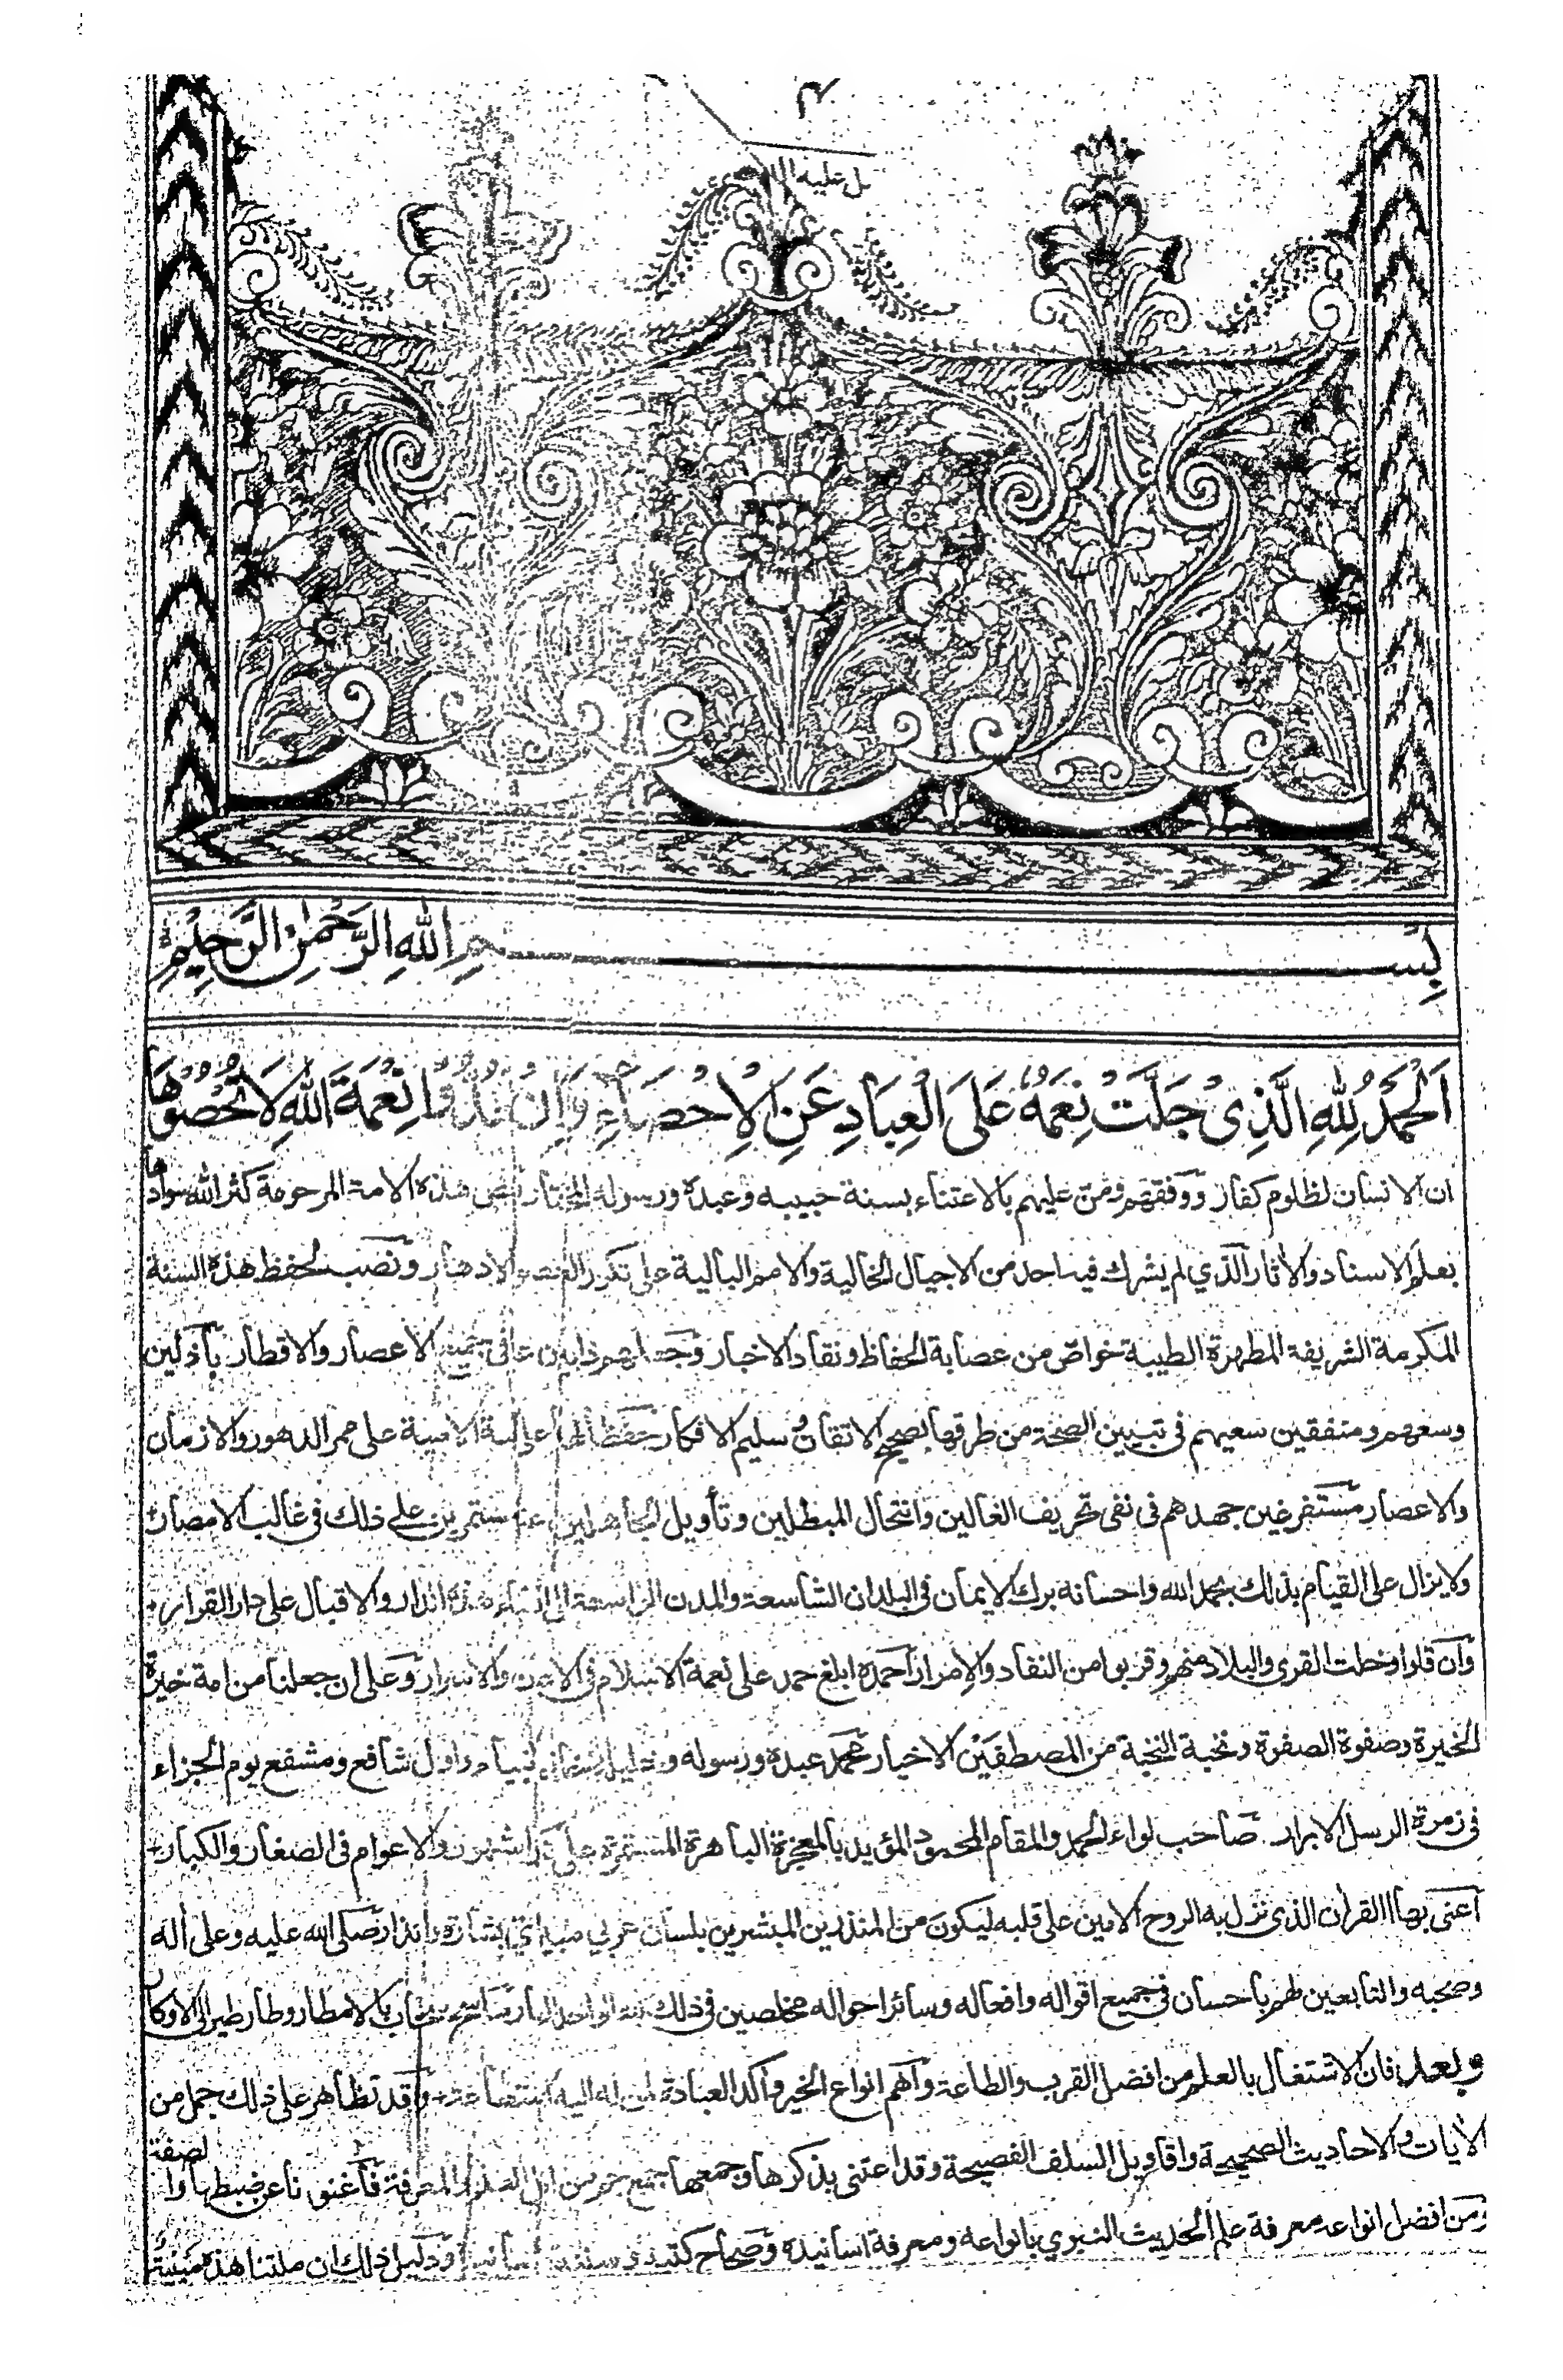 ٢
بِسْمِ اللهِ الرَّحْمٰنِ الرَّحِيْمِ
اَلْحَمْدُ لِلّٰهِ الَّذِىْ جَلَّتْ نِعَمُهٗ عَلَى الْعِبَادِ عَنِ الْاِحْصَآءِ وَاِنْ تَعُدُّوْا نِعْمَةَ اللهِ لَا تُحْصُوْهَا
ان الانسان لظلوم كفار ووفقهم ومن عليهم بالاعتناء بسنة حبيبه وعبده ورسوله المختار هذه الامة المرحومة كثر الله سوادها
بعلم الاسناد والأثار الذي لم يشرك فيها احد من الاجيال الخالية والامم البالية على تكرر العصور والادهار ونصب لحفظ هذه السنة
المكرمة الشريفة المطهرة الطيبة خواص من عصابة الحفاظ ونقاد الاخبار وجعلهم ذابين عنها في جميع الاعصار والاقطار بأذلين
وسعهم ومنفقين سعيهم فى تبيين الصحة من طرقها بصحيح الاتقان وسليم الافكار حفظا لها على الامة الامينة على ممر الدهور والازمان
والاعصار مستفرغين جهدهم فى نفى تحريف الغالين وانتحال المبطلين وتأويل الجاهلين عنها مستمرين على ذلك فى غالب الامصار
ولا يزال على القيام بذلك بحمد الله واحسانه برك الايمان فى البلدان الشاسعة والمدن الواسعة الى انتهاء هذه الدار والاقبال على دار القرار
وان قلوا وخلت القرى والبلاد منهم وقربوا من النفاد والامرار احمده ابلغ حمد على نعمة الاسلام فى الاعلان والاسرار وعلى ان جعلنا من امة خيرة
الخيرة وصفوة الصفوة ونخبة النخبة من المصطفين الاخيار محمد عبده ورسوله وخليله واول شافع ومشفع يوم الجزاء
فى زمرة الرسل الابرار صاحب لواء الحمد والمقام المحمود المؤيد بالمعجزة الباهرة المستمرة على والاعوام فى الصغار والكبار
اعنى بها القران الذى نزل به الروح الامين على قلبه ليكون من المنذرين المبشرين بلسان عربي مبين بشارة وانذار صلى الله عليه وعلى أله
وصحبه والتابعين لهم بأحسان فى جميع اقواله وافعاله وسائر احواله مخلصين فى ذلك لله الواحد بالامطار وطار طير الى الاوكار
وبعد فان الاشتغال بالعلم من افضل القرب والطاعة وأهم انواع الخير وأكد العبادة وقد تظاهر على ذلك جمل من
الأيات والاحاديث الصحيحة واقاويل السلف الفصيحة وقد اعتنى بذكرها وجمعها جمع من اهل والمعرفة فأغنونا عن ضبطها والصفة
ومن افضل انواعه معرفة علم الحديث النبوي بانواعه ومعرفة اسانيده وصحاح كتبه ودليل ذلك ان ملتنا هذه مبنية